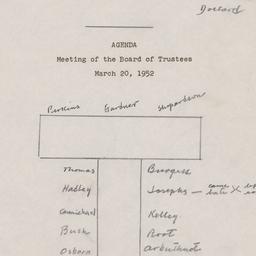 Dollard
AGENDA
Meeting of the Board of Trustees
March 20, 1952
Perkins Gardner Shepardson
Thomas Burgess
Hadley Josephs — came late X left
Carmichael Kelley
Bush Root
Osborn Arbuthnot